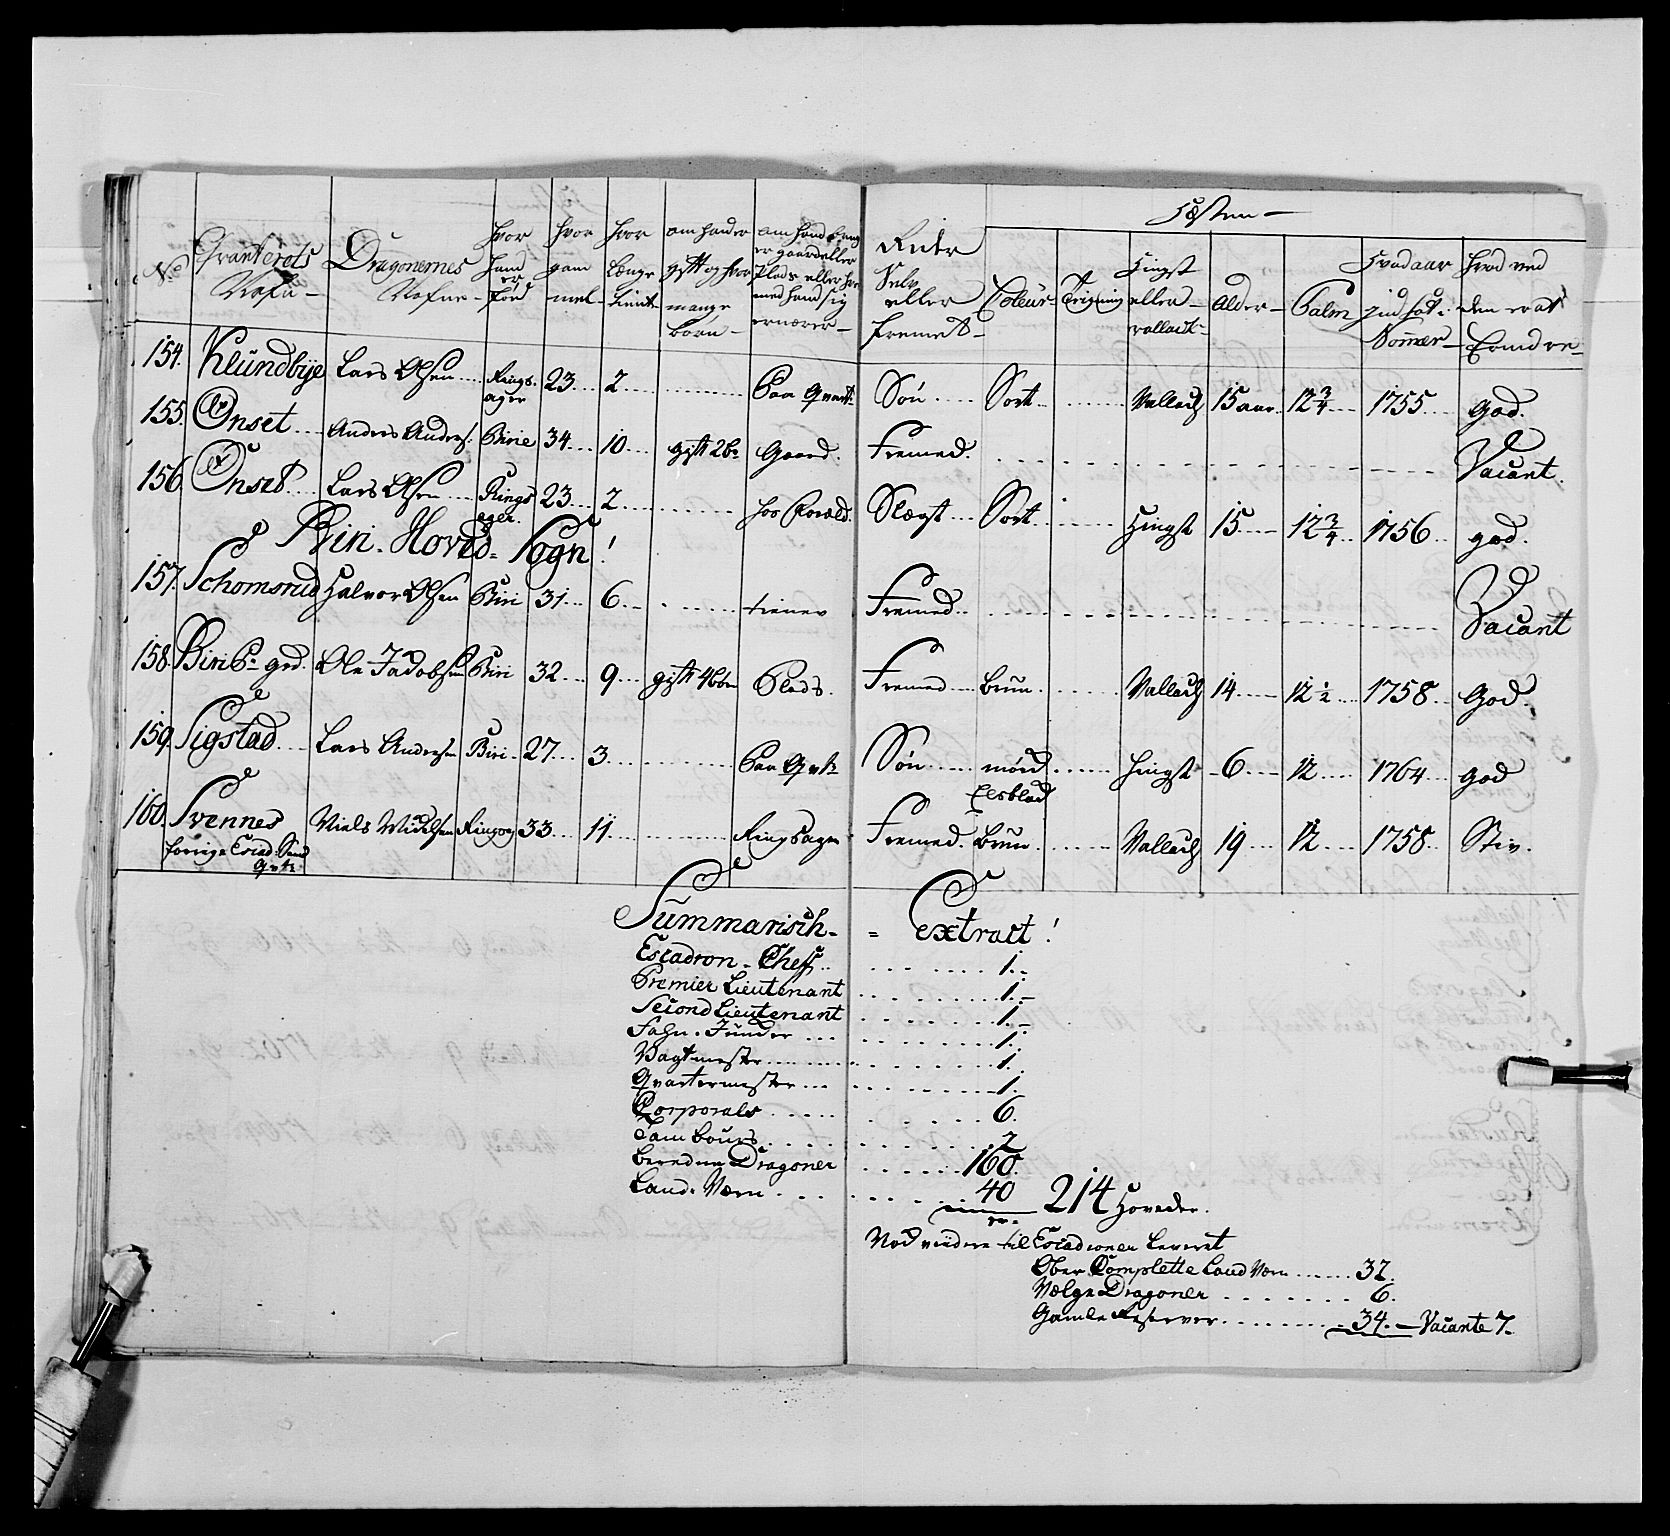 No
Qvarterets Nafn –
Dragonernes Nafne –
hvor hand er fød
hvor gam mel –
hvor Længe tient –
om hand er gift og hvor mange børn –
om hand bruger gaard eller Plads eller hvor med hand sig ernærer –
Rider Selv eller fremet –
Hæsten –
Coleur –
Tegning
Hingst eller vallack –
Alder –
Palm
Hvad aar ind sat: Nommer –
Hvad ved den er at Erindre –
154. Klundbye Lars Olsen Rings: ager 23 2 Paa Qvart: Søn Sort Vallack 15 aar 12 3/4 1755 God.
155. Onset Anders Anders: Birie 34 10 gift 2 b: Gaard. Fremed. Vacant.
156 Onset Lars Olsen Rings eger. 23 2 hos Foræld. Slægt Sort Hingst 15 12 3/4 1756 god.
Biri - Hoved - Sogn!
157. Schomsrud Halvor Olsen Biri 31 6 tiener Fremed Vacant
158. Biri P: grd. Ole Jacobsen Biri 32 9 gift 4 bbn Plads. Fremed brun Vallack 14 12 1/2 1758 God.
159. Sigstad Lars Andersen Biri 27 3 Paa Qvt: Søn mörch Elsblad Hingst 6 12 1764 god
160. Svennes Niels Nielsen Ringsag 33 11 Ringsager Fremed Brun Vallack 19 12 1758 Stiv.
forrige Escad:
Qvt:
Summarisch - = Extract!
Escadron - Cheff 1.
Premier Lieutenant 1.
Second Lieutenant 1.
Fahn - Juncker 1.
Vagtmester 1.
Qvartermester 1.
Corporals 6.
Tambours 2
beredne Dragoner 160.
Land: Værn 40
214 Hoveder.
Escadronen leveret
Ober Complette Land Værn 37.
Vælge Dragoner 6.
Gamle Reserver 34. – Vacante 7.